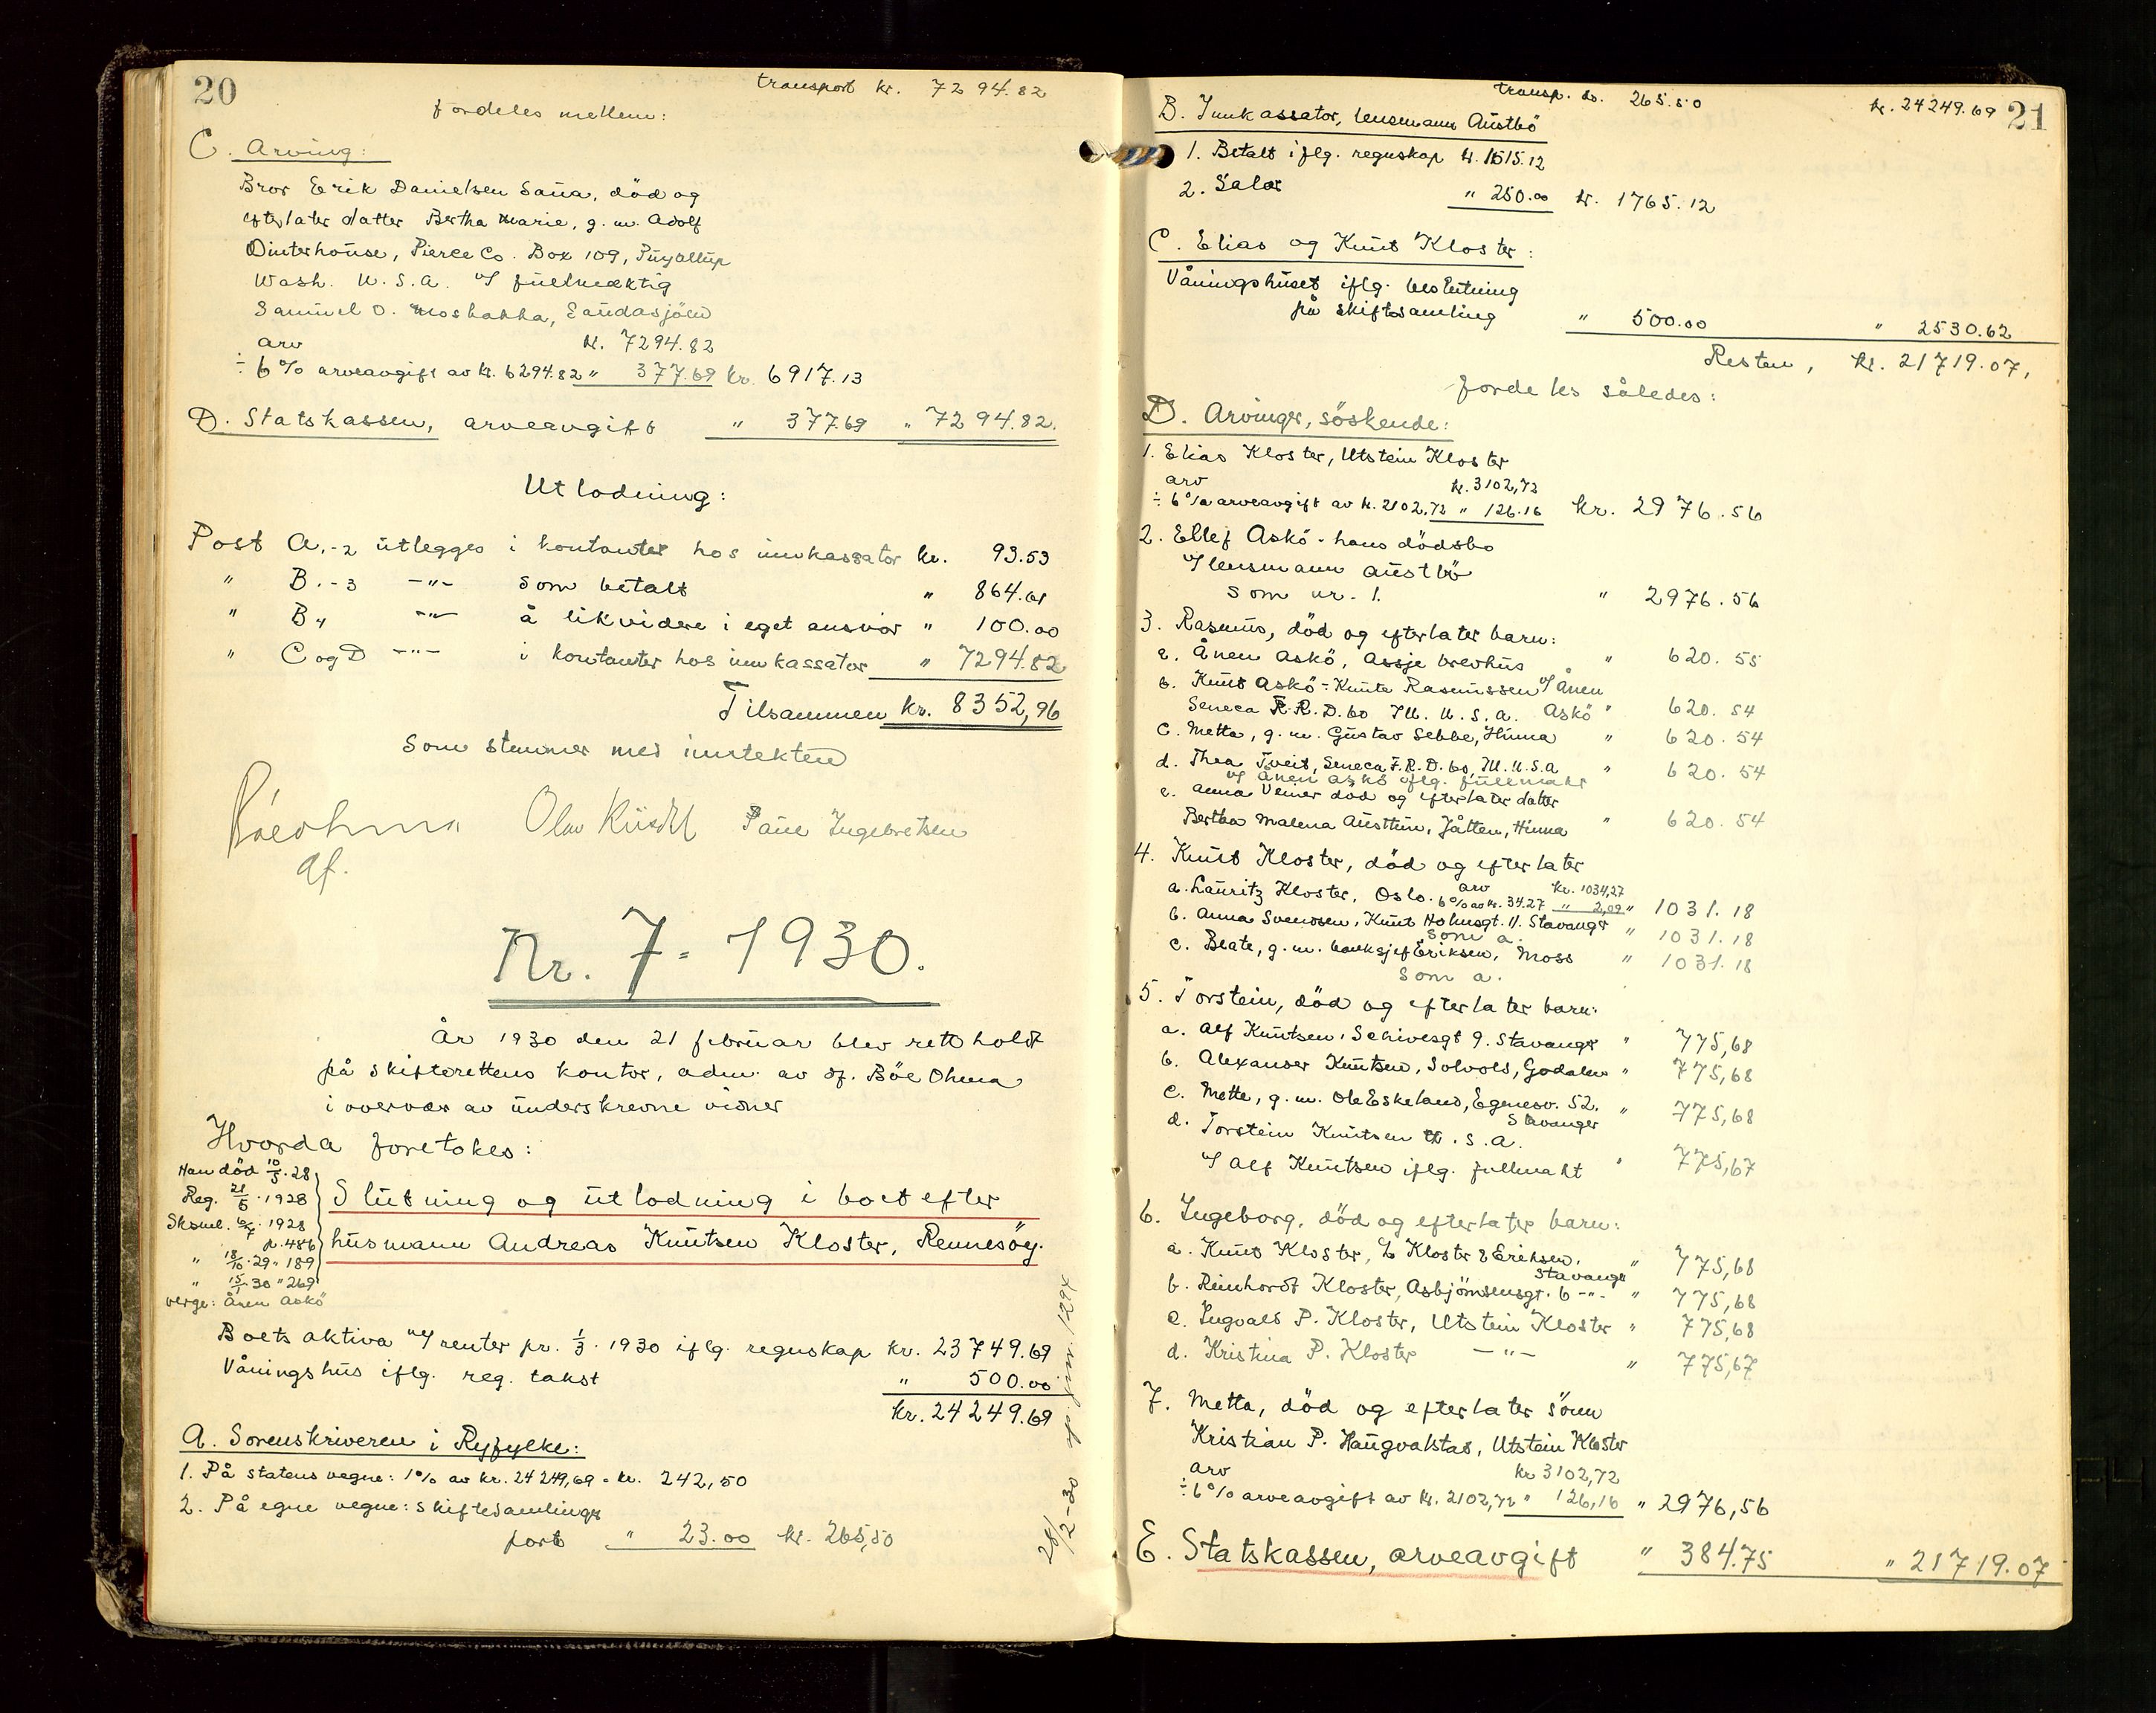 20
transport kr. 7294.82
fordeles mellem:
C. Arving:
Bror Erik Danielsen Sana, död og
efterlater datter Bertha Marie, g. m. Adolf
Dinterhouse, Pierce Co. Box 109, Puyallup
Wash. U. S. A. v/ fullmektig
Samuel O. Moshakka, Sandasjöen
arv kr. 7294.82
÷ 6% arveavgift av kr. 6294.82 " 377.69 kr. 6917.13
D. Statskassen, arveavgift " 377.69 " 7294.82.
Utlodning:
Post A.-2 utlegges i kontanter hos innkassator kr. 93.53
" B.-3 -"- som betalt " 864.61
" B4 -"- å likvidere i eget ansvar " 100.00
" C og D -"- i kontanter hos innkassator " 7294.82
Tilsammen kr. 8352,96
som stemmer med inntekten
Böe Ohma Olav Paul Ingebretsen
af.
Nr. 7 - 1930.
År 1930 den 21 februar blev rett holdt
på skifterettens kontor, adm. av sf. Böe Ohma
i overvær av underskrevne vidner
Hvorda foretokes:
Han död 10/5.28
Reg. 21/6.1928
Sksml. 6/7.1928
p. 486
" 18/10.29 " 189
" 15/1.30 " 269
verge: Ånen Askö
Slutning og utlodning i boet efter
husmann Andreas Knutsen Kloster, Rennesöy.
Boets aktiva m/ renter pr. 1/3. 1930 iflg. regnskap kr. 23749.69
Våningshus iflg. reg. takst " 500.00
kr. 24249.69
A. Sorenskriveren i Ryfylke:
1. På statens vegne: 1% av kr. 24249,69 = kr. 242,50
2. På egne vegne: skiftesamlings
port " 23.00 kr. 265,50
28/2-30
21
transp. kr. 265.50 kr. 24249.69
B. Innkassator, lensmann Austbö
1. Betalt iflg. regnskap kr. 1515.12
2. Salær " 250.00 kr. 1765.12
C. Elias og Knut Kloster:
Våningshuset iflg. beslutning
på skiftesamling " 500.00 " 2530.62
Resten, kr. 21719.07,
fordeles således:
D. Arvinger, söskende:
1. Elias Kloster, Utstein Kloster
arv kr. 3102,72
÷ 6% arveavgift av kr. 2102,72 " 126.16 kr. 2976.56
2. Ellef Askö - hans dödsbo
v/ lensmann Austbö
som nr. 1. " 2976.56
3. Rasmus, död og efterlater barn:
a. Ånen Askö, Assje brevhus " 620.55
b. Knut Askö - Knute Rasmussen v/ Ånen
Seneca F. R. D. 60 Ill. U. S. A. Askö " 620.54
c. Metta, g. m. Gustav Sebbe, Hinna " 620.54
d. Thea Tveit, Seneca F.R.D. 60, Ill. U.S.A " 620.54
v/ Ånen Askö iflg. fullmakt
e. Anna Veiner död og efterlater datter
Bertha Malena Austtun, Jåtten, Hinna " 620.54
4. Knut Kloster, död og efterlater
a. Lauritz Kloster, Oslo. arv kr. 1034,27
6% av kr. 34.27 " 2,09 " 1031.18
b. Anna Svendsen, Knut Holmsgt. 11. Stavanger " 1031.18
som a.
c. Beate, g. m. banksjef Eriksen, Moss " 1031.18
som a.
5. Torstein, död og efterlater barn:
a. Alf Knutsen, Schivesgt 9. Stavanger " 775,68
b. Alexander Knutsen, Solvold, Godalen " 775,68
c. Mette, g. m. Ole Eskeland, Egenesv. 52. " 775,68
Stavanger
d. Torstein Knutsen U. S. A.
v/ Alf Knutsen iflg. fullmakt " 775,67
6. Ingeborg, död og efterlater barn:
a. Knut Kloster, L Kloster & Eriksen, " 775,68
Stavanger
b. Reinhardt Kloster, Asbjörnsensgt. 6 -"- " 775,68
c. Ingvald P. Kloster, Utstein Kloster " 775,68
d. Kristina P. Kloster -"- " 775,67
7. Metta, död og efterlater sönn
Kristian P. Haugvalstad, Utstein Kloster
arv kr 3102,72
÷ 6% arveavgift av kr. 2102,72 " 126,16 " 2976,56
E. Statskassen, arveavgift " 384.75 " 21719.07